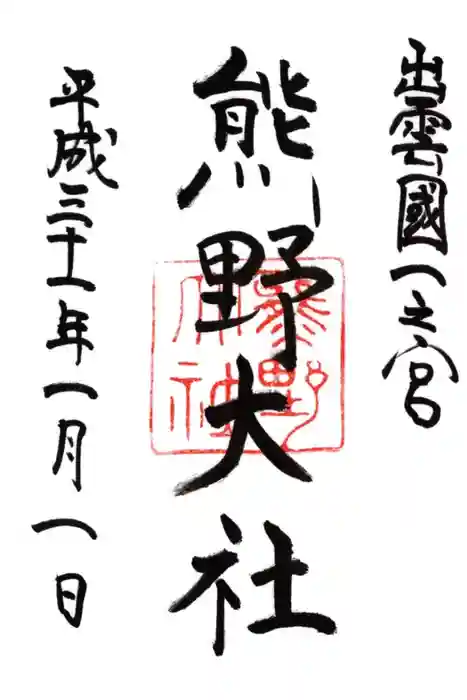 出雲國一之宮
熊野大社
熊野大社
平成三十一年一月一日